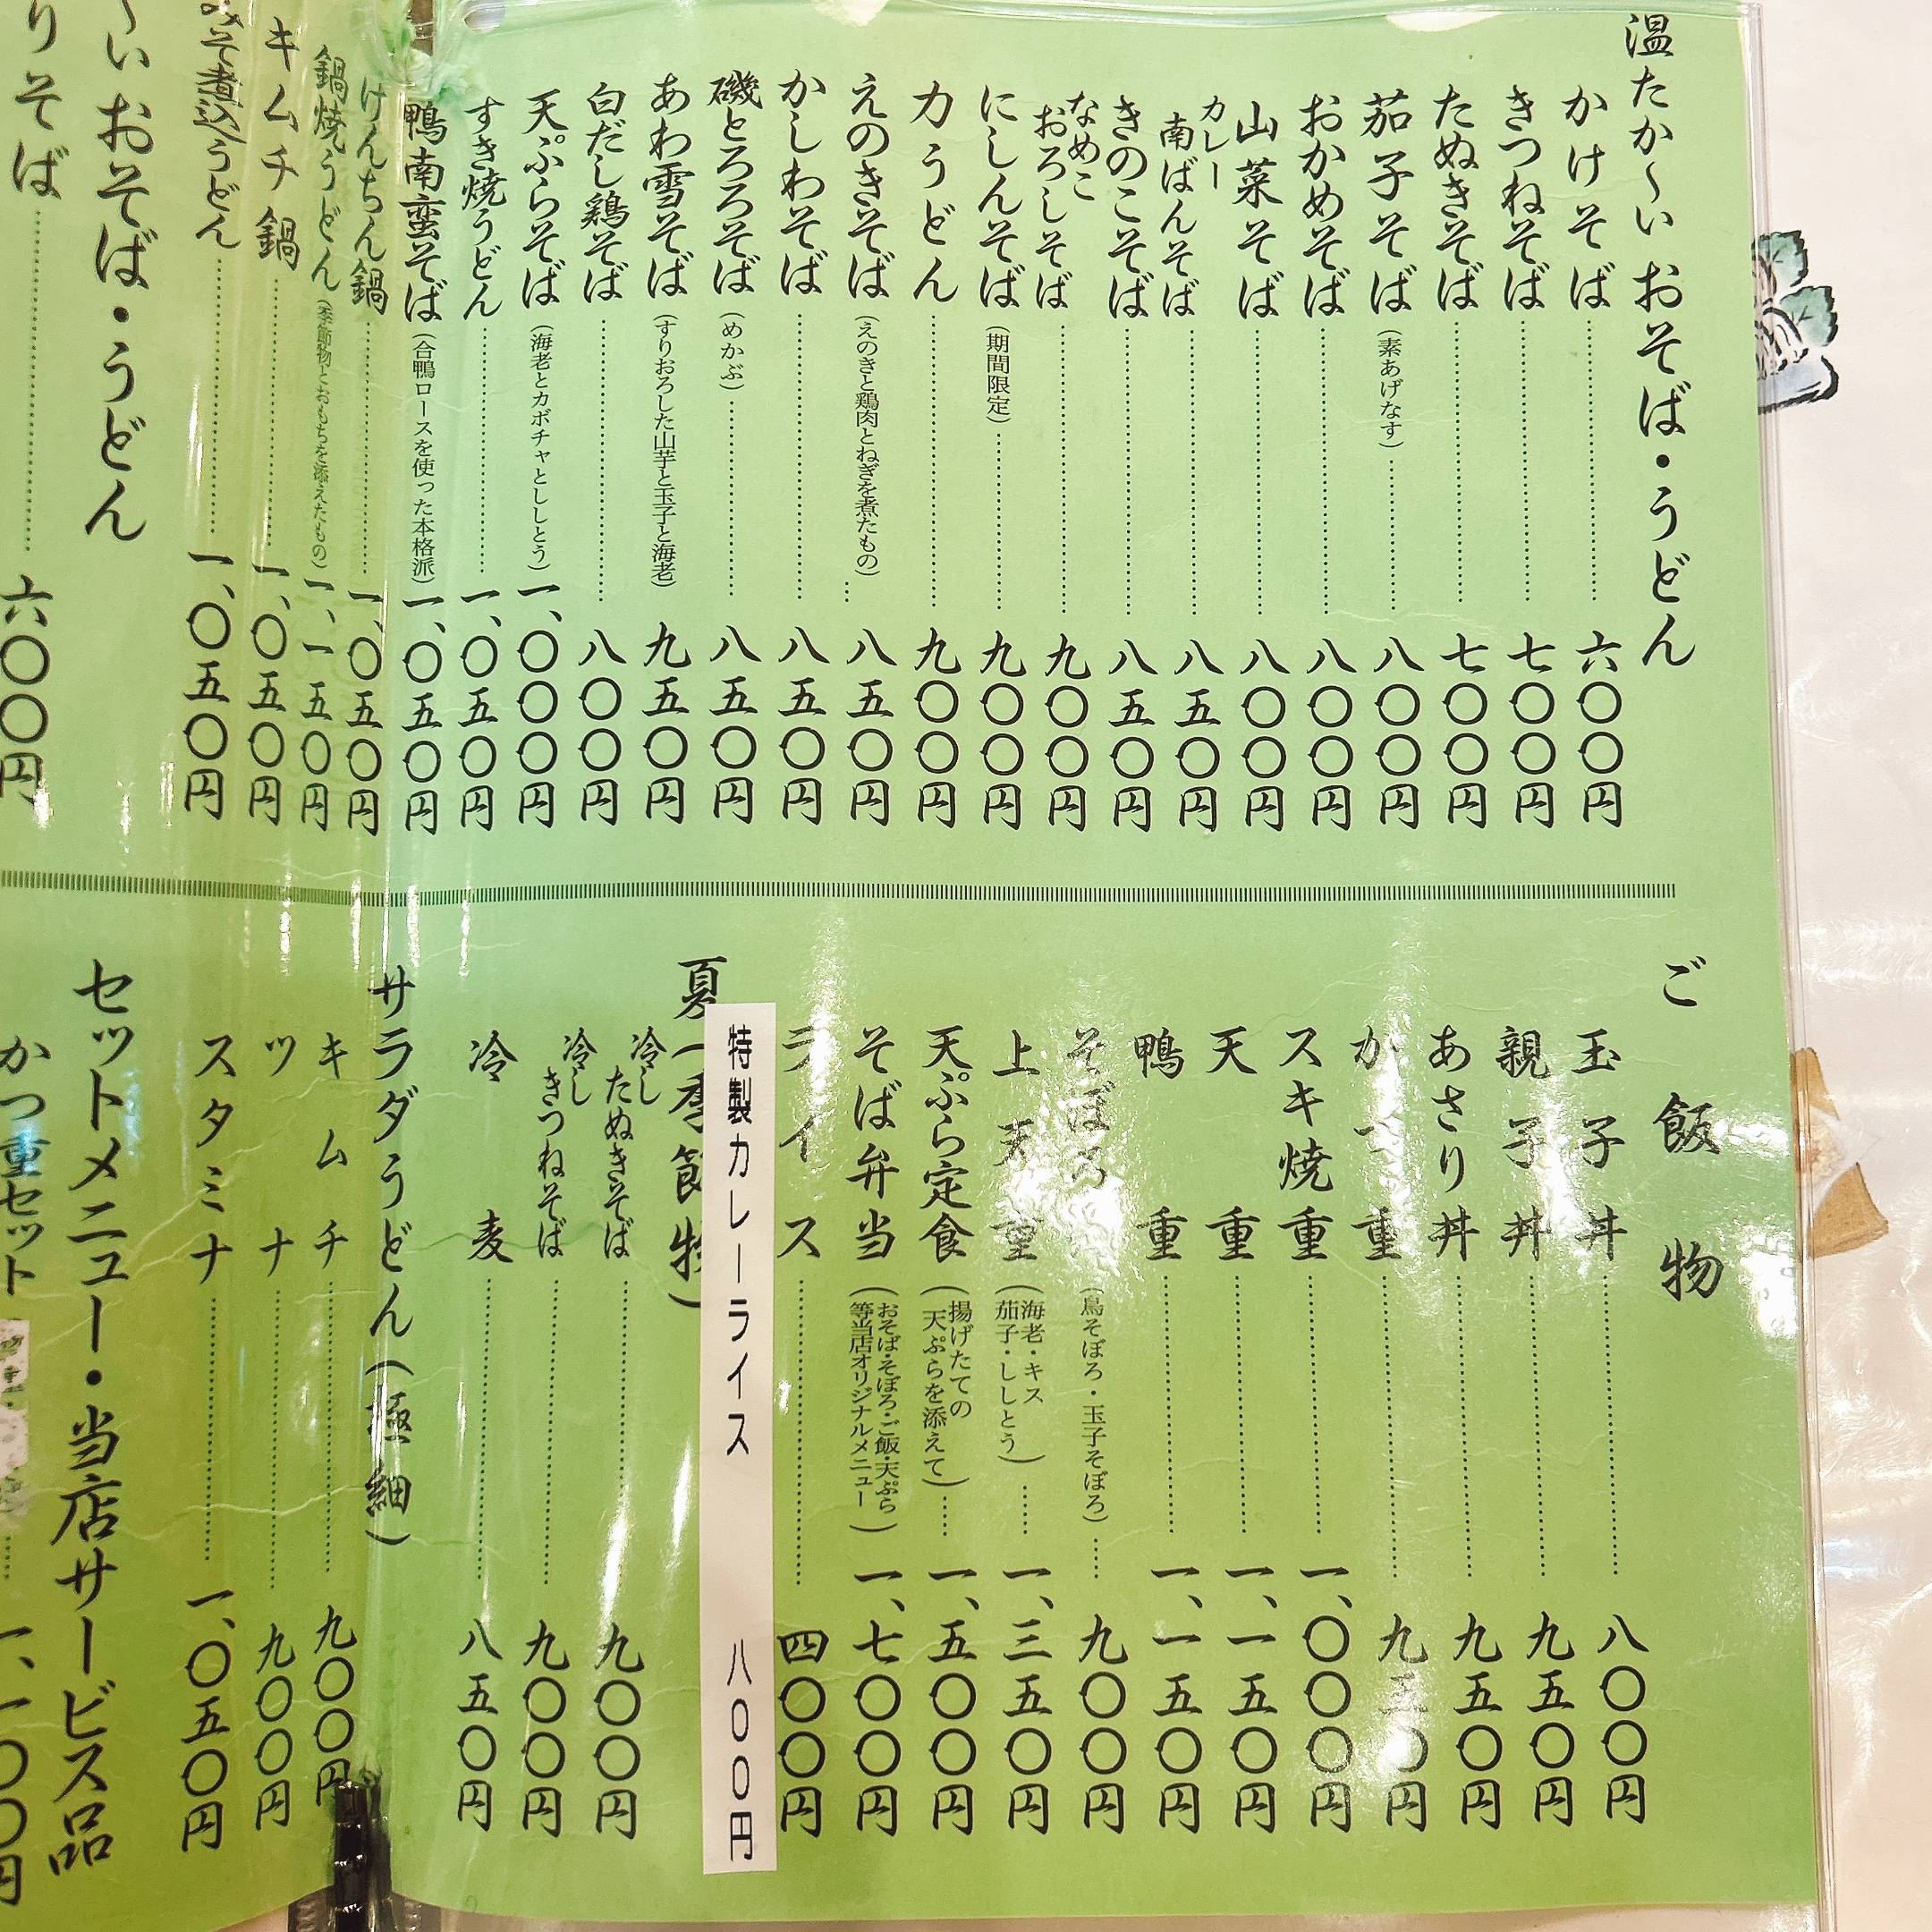 温たか〜いおそば・うどん
かけそば 六〇〇円
きつねそば 七〇〇円
たぬきそば 七〇〇円
茄子そば (素あげなす) 八〇〇円
おかめそば 八〇〇円
山菜そば 八〇〇円
カレー南ばんそば 八五〇円
きのこそば 八五〇円
なめこおろしそば 九〇〇円
にしんそば (期間限定) 九〇〇円
力うどん 九〇〇円
えのきそば (えのきと鶏肉とねぎを煮たもの) 八五〇円
かしわそば 八五〇円
磯とろろそば (めかぶ) 八五〇円
あわ雪そば (すりおろした山芋と玉子と海老) 九五〇円
白だし鶏そば 八〇〇円
天ぷらそば (海老とカボチャとししとう) 一、〇〇〇円
すき焼うどん 一、〇五〇円
鴨南蛮そば (合鴨ロースを使った本格派) 一、〇五〇円
けんちん鍋 一、〇五〇円
鍋焼うどん (季節物とおもちを添えたもの) 一、一五〇円
キムチ鍋 一、〇五〇円
みそ煮込うどん 一、〇五〇円
〜いおそば・うどん
りそば 六〇〇円
ご飯物
玉子丼 八〇〇円
親子丼 九五〇円
あさり丼 九五〇円
かつ重 九五〇円
スキ焼重 一、〇〇〇円
天重 一、一五〇円
鴨重 一、一五〇円
そぼろ (鳥そぼろ・玉子そぼろ) 九〇〇円
上天重 (海老・キス茄子・ししとう) 一、三五〇円
天ぷら定食 (揚げたての天ぷらを添えて) 一、五〇〇円
そば弁当 (おそば・そぼろ・ご飯・天ぷら等当店オリジナルメニュー) 一、七〇〇円
ライス 四〇〇円
特製カレーライス 八〇〇円
夏(季節物)
冷したぬきそば 九〇〇円
冷しきつねそば 九〇〇円
冷麦 八五〇円
サラダうどん(極細)
キムチ 九〇〇円
ツナ 九〇〇円
スタミナ 一、〇五〇円
セットメニュー・当店サービス品
かつ重セット 一、一〇〇円